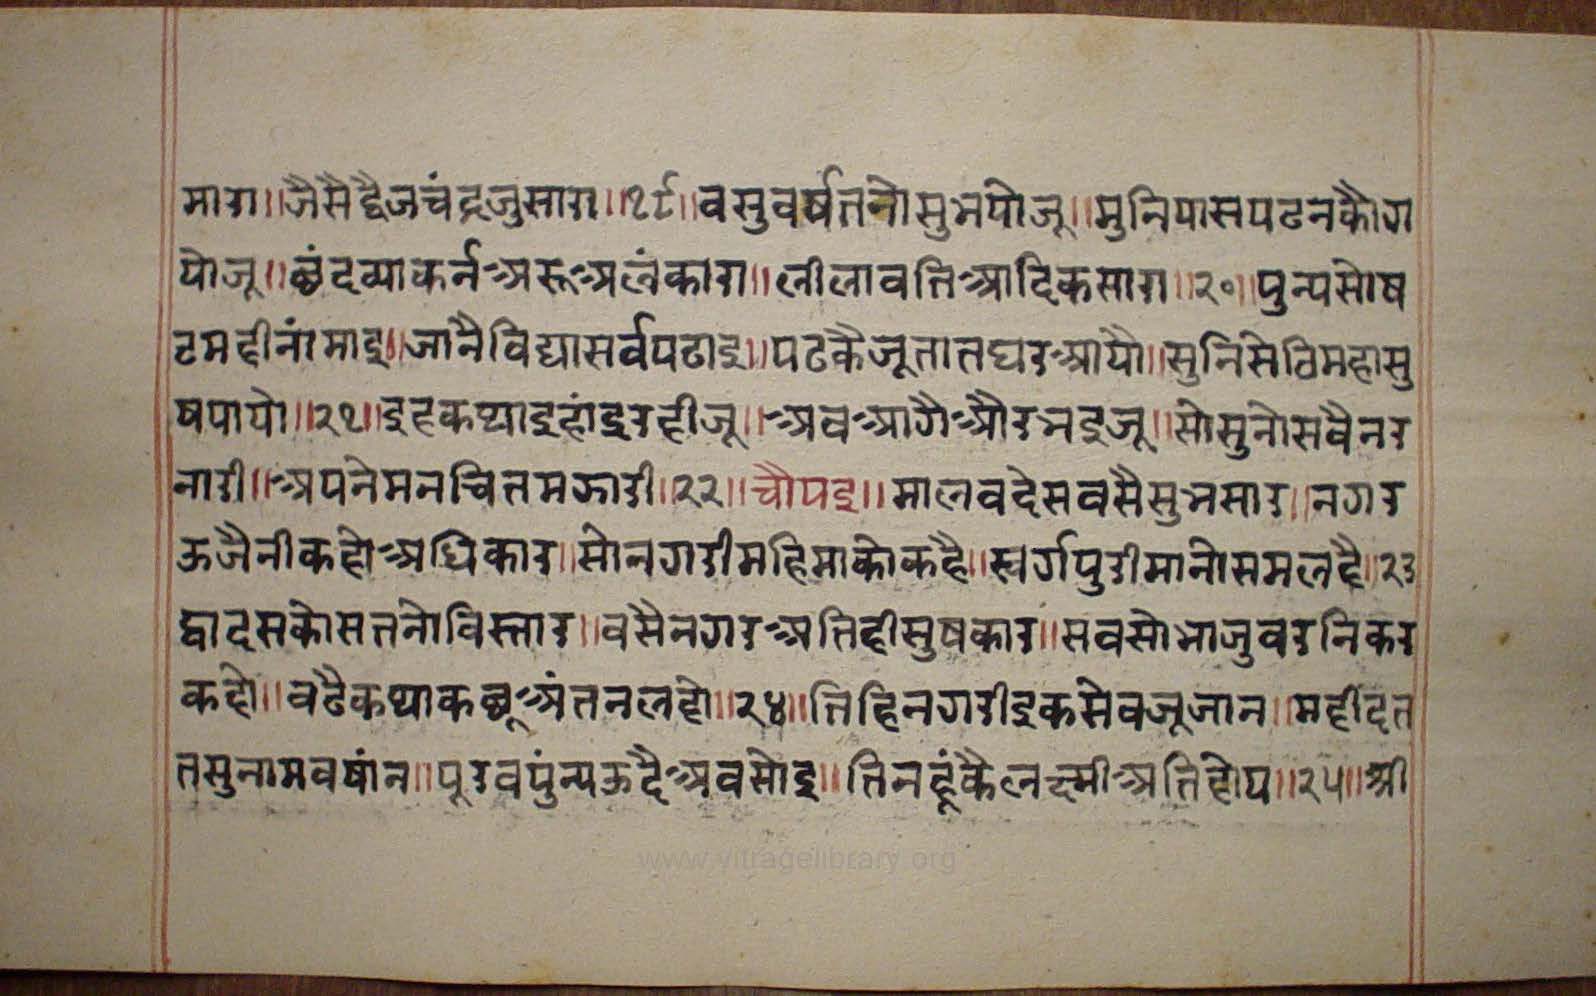 मारा॥जैसैद्वैजचंद्रजुसारा॥१९॥वसुवर्षतनोसुभयोजू॥मुनिपासपढनकौग
योजू॥छंदव्याकर्नअरूअलंकारा॥लीलावतिआदिकसारा॥२०॥पुन्यसोष
टमहीनांमाइ॥जानैविद्यासर्वपढाइ॥पढकैजूतातघरआयौ॥सुनिसेठिमहासु
षपायो॥२१॥इहकथाइहांइरहीजू॥अवआगैऔरभइजू॥सोसुनोसवैनर
नारी॥अपनेमनचितमझारी॥२२॥चौपइ॥मालवदेसवसैसुभसार॥नगर
ऊजैनीकहोअधिकार॥सोनगरीमहिमाकोकहै॥स्वर्गपुरीमानोसमलहै॥२३
द्वादसकोसतनोविस्तार॥वसैनगरअतिहीसुषकार॥सवसोभाजुवरनिकर
कहो॥वढैकथाकछूअंतनलहो॥२४॥तिहिनगरीइकसेवजूजान॥महीदत
तसुनामवषांन॥पूरवपुंन्यऊदैअवसोइ॥तिनहूंकैलक्ष्मीअतिहोय॥२५॥श्री
www.vitragelibrary.org